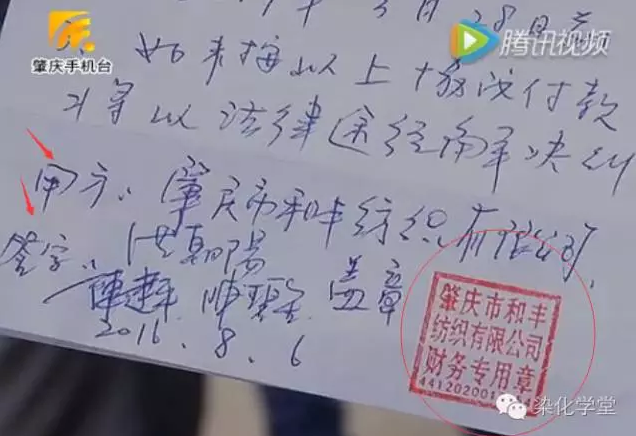 肇庆手机台
腾讯视频
年3月28日前
如未按以上协议付款
将以法律途经解决
甲方、肇庆市和丰纺织有限公司
签字、洪朝阳
盖章
2016.8.6
肇庆市和丰
纺织有限公司
财务专用章
441202001
染化学堂